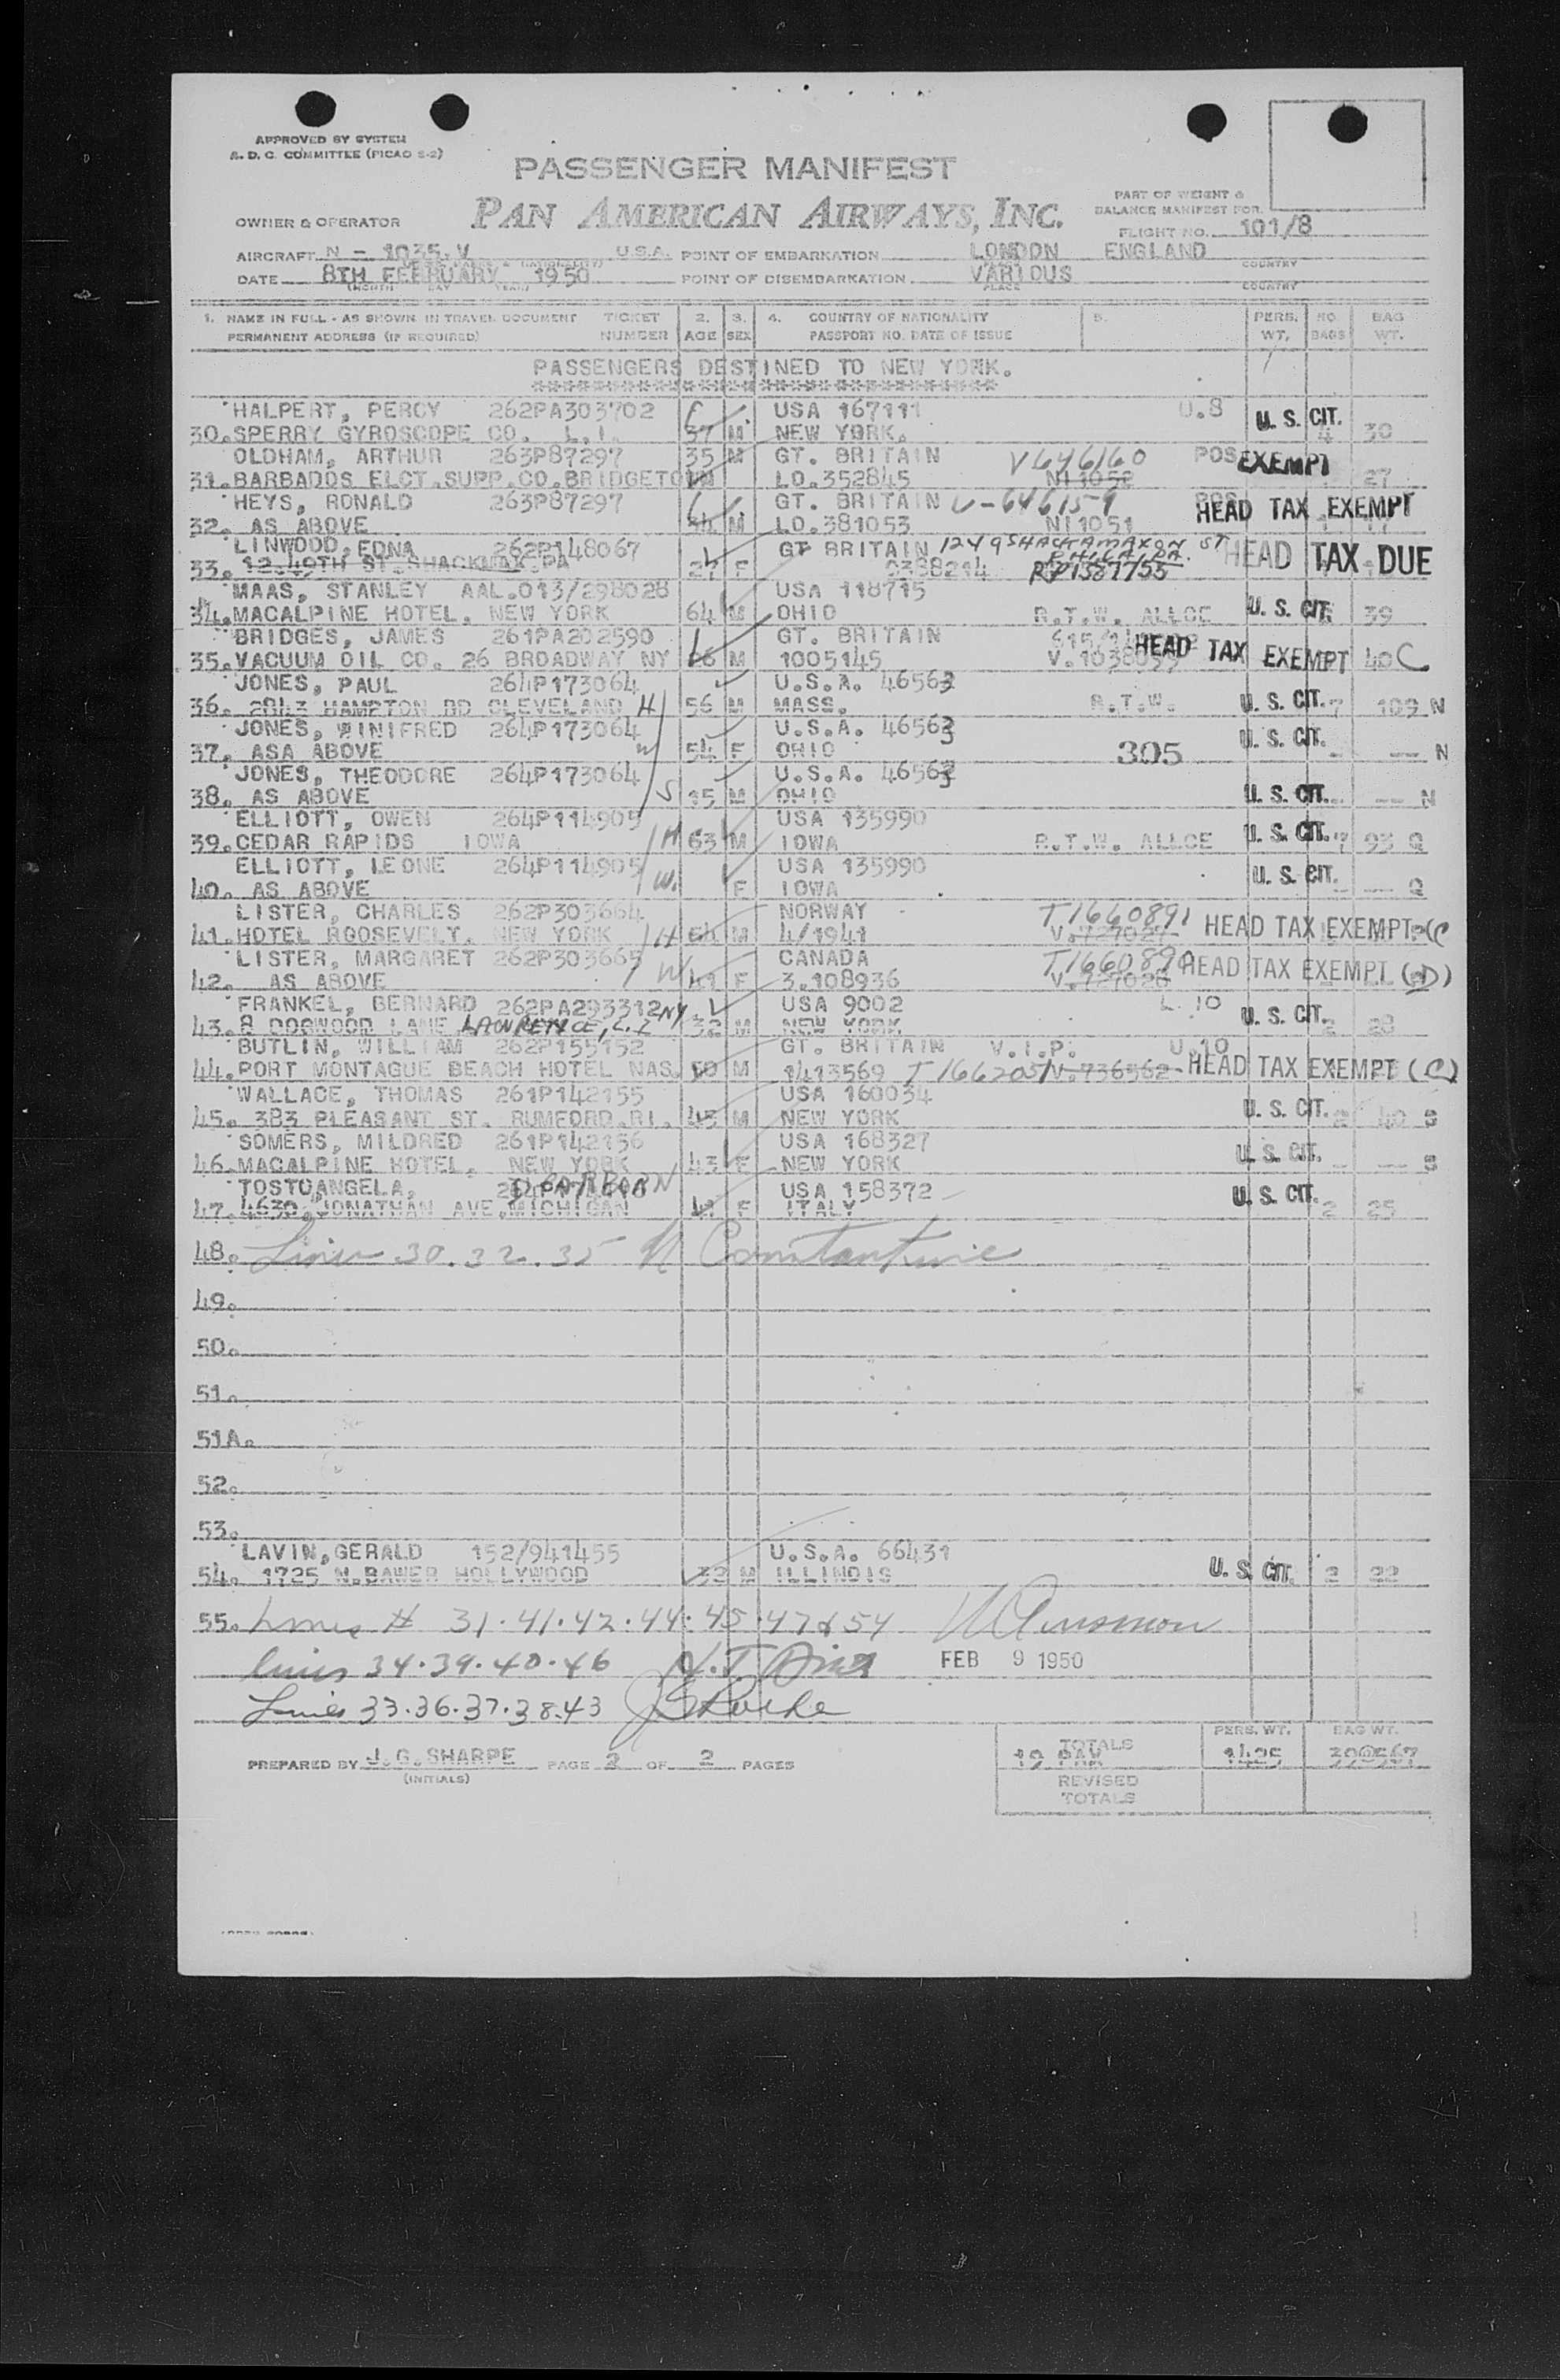 APPROVED BY SYSTEM
A. D. C. COMMITTEE (PICAO S-2)
PASSENGER MANIFEST
PAN AMERICAN AIRWAYS, INC.
OWNER & OPERATOR
PART OF WEIGHT &
BALANCE MANIFEST FOR
FLIGHT NO. 101/8
AIRCRAFT N - 1035.V U.S.A. POINT OF EMBARKATION LONDON ENGLAND
DATE 8TH FEBRUARY 1950 POINT OF DISEMBARKATION VARIOUS
PLACE COUNTRY
1. NAME IN FULL - AS SHOWN IN TRAVEL DOCUMENT TICKET 2. 3. 4. COUNTRY OF NATIONALITY 5. PERS. NO. BAG
PERMANENT ADDRESS (IF REQUIRED) NUMBER AGE SEX PASSPORT NO. DATE OF ISSUE WT. BAGS WT.
PASSENGERS DESTINED TO NEW YORK.
HALPERT, PERCY 262PA303702 USA 167111 U.S U. S. CIT.
30. SPERRY GYROSCOPE CO. L.I. 37 M NEW YORK. 4 30
OLDHAM, ARTHUR 263P87297 35 M GT. BRITAIN V646160 POS EXEMPT
31. BARBADOS ELCT.SUPP.CO.BRIDGETOWN LO.352845 NI1052 27
HEYS, RONALD 263P87297 GT. BRITAIN V-646159 HEAD TAX EXEMPT
32. AS ABOVE 34 M LO.381053 NI1051
LINWOOD, EDNA 262P148067 GT BRITAIN 1249 SHACKAMAXON ST HEAD TAX DUE
33. 12.49TH ST.SHACKMAX.PA F 0388214 PHILA. PA. RP1387755
MAAS, STANLEY AAL.013/298028 USA 118715
34. MACALPINE HOTEL. NEW YORK 64 M OHIO R.T.W. ALLOE U. S. CIT. 39
BRIDGES, JAMES 261PA202590 GT. BRITAIN HEAD TAX EXEMPT
35. VACUUM OIL CO. 26 BROADWAY NY 46 M 1005145 40 C
JONES, PAUL 264P173064 U.S.A. 46563
36. 2843 HAMPTON RD CLEVELAND H 56 M MASS. R.T.W. U. S. CIT. 7 109 N
JONES, WINIFRED 264P173064 U.S.A. 46563
37. ASA ABOVE W 54 F OHIO 305 U. S. CIT. - -- N
JONES, THEODORE 264P173064 U.S.A. 46563
38. AS ABOVE S 15 M OHIO U. S. CIT. - -- N
ELLIOTT, OWEN 264P114905 USA 135990
39. CEDAR RAPIDS IOWA H 63 M IOWA R.T.W. ALLOE U. S. CIT. 7 93 Q
ELLIOTT, LEONE 264P114905 USA 135990
40. AS ABOVE W. F IOWA U. S. CIT. - -- Q
LISTER, CHARLES 262P303664 NORWAY T1660891
41. HOTEL ROOSEVELT. NEW YORK H 54 M 4/1941 HEAD TAX EXEMPT (C
LISTER, MARGARET 262P303665 CANADA T1660890
42. AS ABOVE W 41 F 3.108936 HEAD TAX EXEMPT (D)
FRANKEL, BERNARD 262PA293312 NY. USA 9002 L.10
43. 8 DOGWOOD LANE LAWRENCE, L.I 32 M NEW YORK U. S. CIT. 2 28
BUTLIN, WILLIAM 262P155152 GT. BRITAIN V.I.P. U.10
44. PORT MONTAGUE BEACH HOTEL NAS. 50 M 1413569 T 1662051 V.736562 HEAD TAX EXEMPT (C)
WALLACE, THOMAS 261P142155 USA 160034
45. 383 PLEASANT ST. RUMFORD.RI. 45 M NEW YORK U. S. CIT. 2 40 S
SOMERS, MILDRED 261P142156 USA 168327
46. MACALPINE HOTEL. NEW YORK 43 F NEW YORK U. S. CIT. - -- S
TOSTOANGELA, DEARBORN USA 158372
47. 4630.JONATHAN AVE.MICHIGAN F ITALY U. S. CIT. 2 25
48. Lines 30.32.35 N Constantine
49.
50.
51.
51A.
52.
53.
LAVIN,GERALD 152/941455 U.S.A. 66431
54. 1725 N.BAWER HOLLYWOOD 32 M ILLINOIS U. S. CIT. 2 22
55. Lines # 31.41.42.44.45.47&54
Lines 34.39.40.46 FEB 9 1950
Lines 33.36.37.38.43
PREPARED BY J.G.SHARPE PAGE 2 OF 2 PAGES
(INITIALS)
TOTALS PERS. WT. BAG WT.
19 PAX 1425 39@567
REVISED
TOTALS